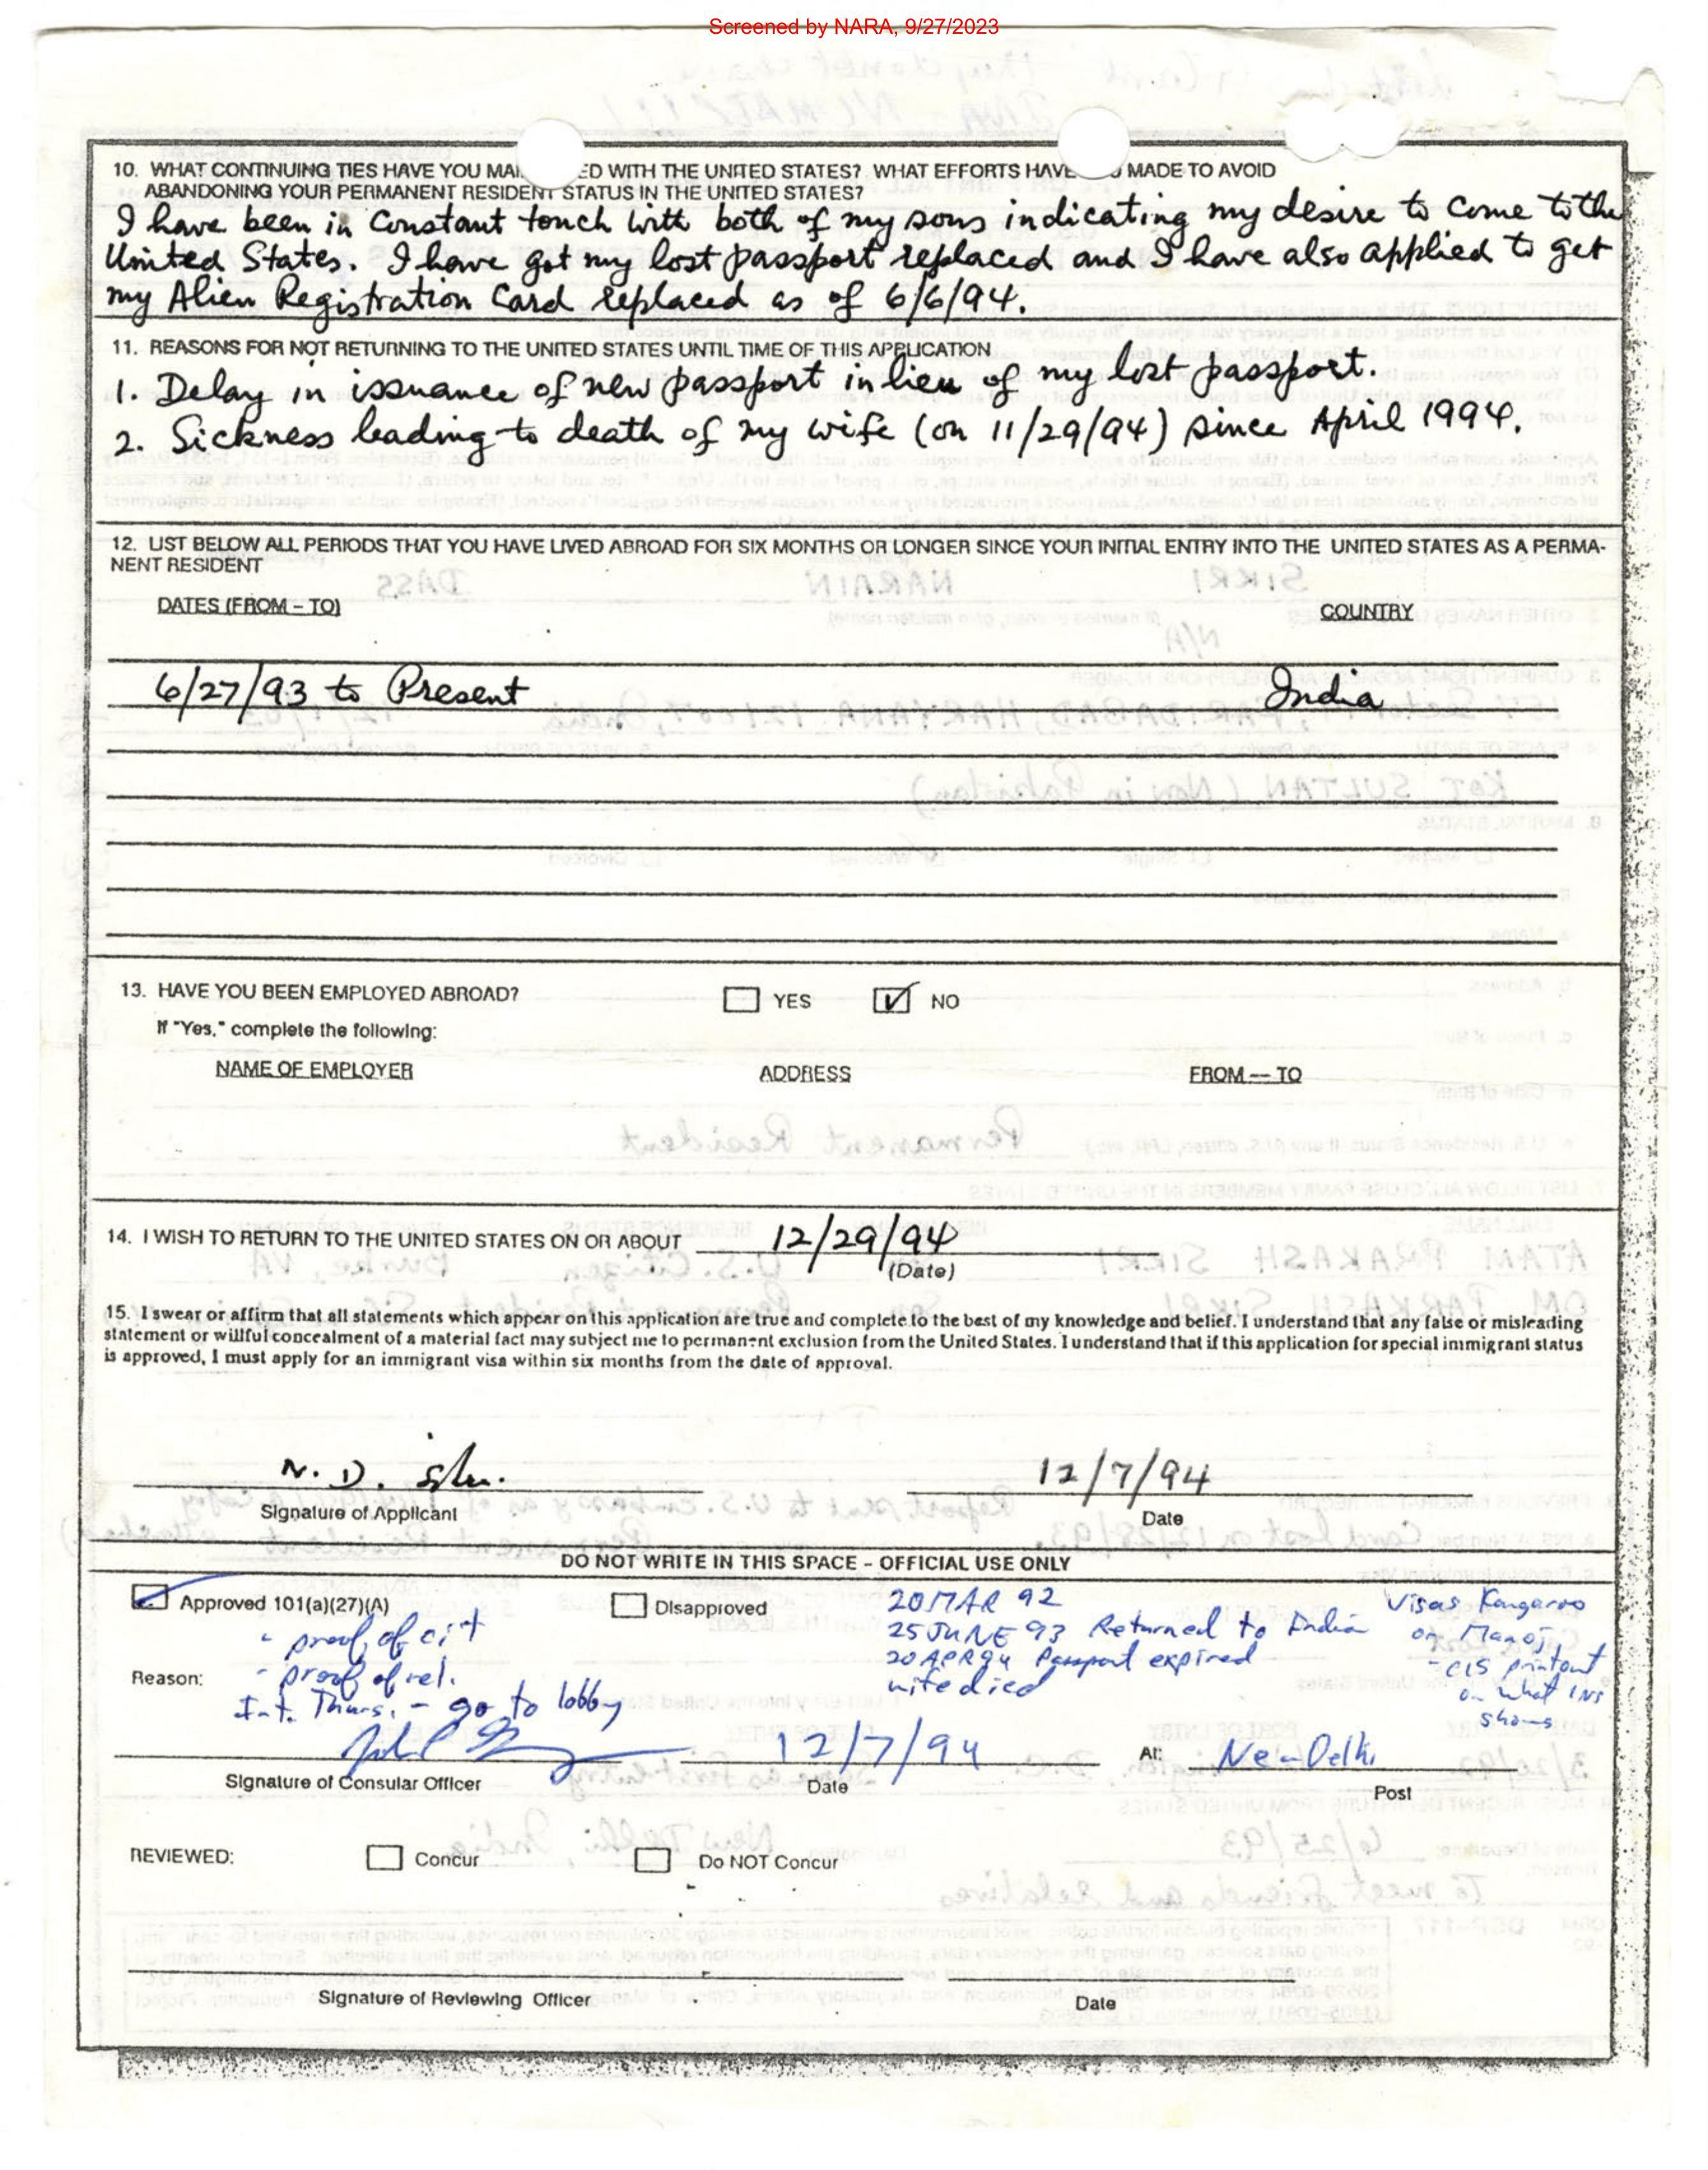 Screened by NARA, 9/27/2023
10. WHAT CONTINUING TIES HAVE YOU MAI ED WITH THE UNITED STATES? WHAT EFFORTS HAVE U MADE TO AVOID
ABANDONING YOUR PERMANENT RESIDENT STATUS IN THE UNITED STATES?
I have been in Constant touch with both of my sons indicating my desire to come to the
United States. I have got my lost passport replaced and I have also applied to get
my Alien Registration Card replaced as of 6/6/94.
11. REASONS FOR NOT RETURNING TO THE UNITED STATES UNTIL TIME OF THIS APPLICATION
1. Delay in issuance of new passport in lieu of my lost passport.
2. Sickness leading to death of my wife (on 11/29/94) since April 1994.
12. LIST BELOW ALL PERIODS THAT YOU HAVE LIVED ABROAD FOR SIX MONTHS OR LONGER SINCE YOUR INITIAL ENTRY INTO THE UNITED STATES AS A PERMA-
NENT RESIDENT
DATES (FROM – TO) COUNTRY
6/27/93 to Present India
13. HAVE YOU BEEN EMPLOYED ABROAD? YES NO
If "Yes," complete the following:
NAME OF EMPLOYER ADDRESS FROM — TO
14. I WISH TO RETURN TO THE UNITED STATES ON OR ABOUT 12/29/94
(Date)
15. I swear or affirm that all statements which appear on this application are true and complete to the best of my knowledge and belief. I understand that any false or misleading
statement or willful concealment of a material fact may subject me to permanent exclusion from the United States. I understand that if this application for special immigrant status
is approved, I must apply for an immigrant visa within six months from the date of approval.
N. D. 12/7/94
Signature of Applicant Date
DO NOT WRITE IN THIS SPACE – OFFICIAL USE ONLY
Approved 101(a)(27)(A) Disapproved 20 MAR 92 Visas Kangaroo
- proof of cit 25 JUNE 93 Returned to India on Manoj,
Reason: - proof of rel. 20 APR 94 Passport expired - CIS printout
wife died on what INS
Int. Thurs. - go to lobby shows
12/7/94 At: New Delhi
Signature of Consular Officer Date Post
REVIEWED: Concur Do NOT Concur
Signature of Reviewing Officer Date